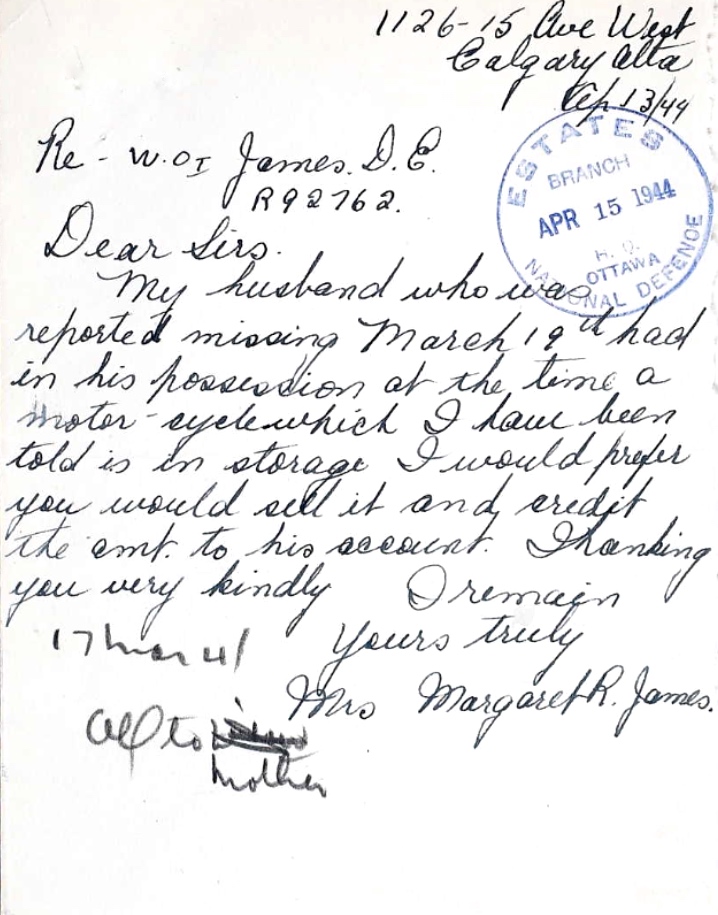 1126-15 Ave West
Calgary Alta
Ap 13/44
Re - W.OI James. D.E.
R92762.
ESTATES
BRANCH
APR 15 1944
H. Q.
OTTAWA
NATIONAL DEFENCE
Dear Sirs.
My husband who was
reported missing March 19th had
in his possession at the time a
motor-cycle which I have been
told is in storage I would prefer
you would sell it and credit
the amt. to his account. Thanking
you very kindly I remain
Yours truly
Mrs Margaret R. James.
17 Mar 41
All to
Mother